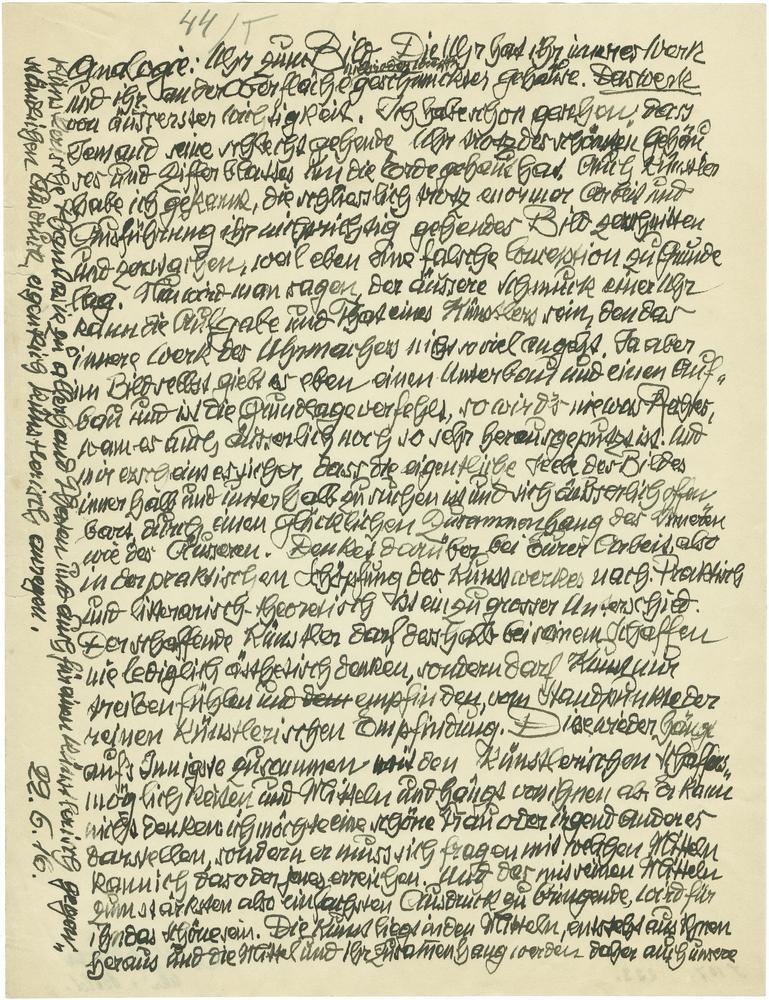 44/I
Analogie: Uhr zum Bild. Die Uhr hat ihr inneres Werk
und ihr an der Oberfläche geschmücktes Gehäuse. Das Werk
von äusserster Wichtigkeit. Ich habe schon gesehen, dass
Jemand seine schlecht gehende Uhr trotz des schönen Gehäu
ses und Zifferblattes an die Erde gehaut hat. Auch Künstler
habe ich gekannt, die schliesslich trotz enormer Arbeit und
Ausführung ihr nicht richtig gehendes Bild zerschnitten
und zerstachen, weil eben eine falsche Conception zu Grunde
lag. Nun wird man sagen, der äussere Schmuck einer Uhr
kann die Aufgabe und That eines Künstlers sein, den das
innere Werk des Uhrmachers nicht so viel angeht. Ja aber
im Bild selbst giebt es eben einen Unterbau und einen Auf-
bau und ist die Grundlage verfehlt, so wird's nie was Rechtes,
wenn es auch äusserlich noch so sehr herausgeputzt ist. Und
mir erscheint es sicher, dass die eigentliche Seele des Bildes
innerhalb und unterhalb zu suchen ist und sich äusserlich offen
bart durch einen glücklichen Zusammenhang des Inneren
wie des Äusseren. Denket darüber bei Eurer Arbeit, also
in der praktischen Schöpfung des Kunstwerkes nach. Praktisch
und litterarisch-theoretisch ist ein zu grosser Unterschied.
Der schaffende Künstler darf deshalb bei seinem Schaffen
nie lediglich ästhetisch denken, sondern darf Kunst nur
treiben fühlen und empfinden, vom Standpunkte der
reinen künstlerischen Empfindung. Diese wieder hängt
auf's Innigste zusammen mit den künstlerischen Schaffens-
möglichkeiten und Mitteln und hängt von ihnen ab. Er kann
nicht denken ich möchte eine schöne Frau oder irgend anderes
darstellen, sondern er muss sich fragen mit welchen Mitteln
kann ich das oder jenes erreichen. Und das mit seinen Mitteln
zum stärksten also einfachsten Ausdruck zu bringende, wird für
ihn das Schöne sein. Die Kunst liegt in den Mitteln, entsteht aus ihnen
heraus und die Mittel und ihr Zusammenhang werden daher auch unsere
künstlerische Phantasie zu allerhand Ideen und auch für einen Künstlerische gegen-
ständigen eigentlich künstlerisch anregen.
22. 6. 16.